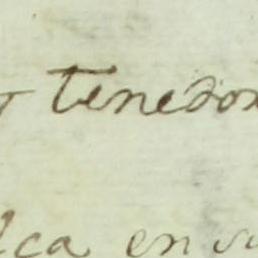 tenedor
lca en su